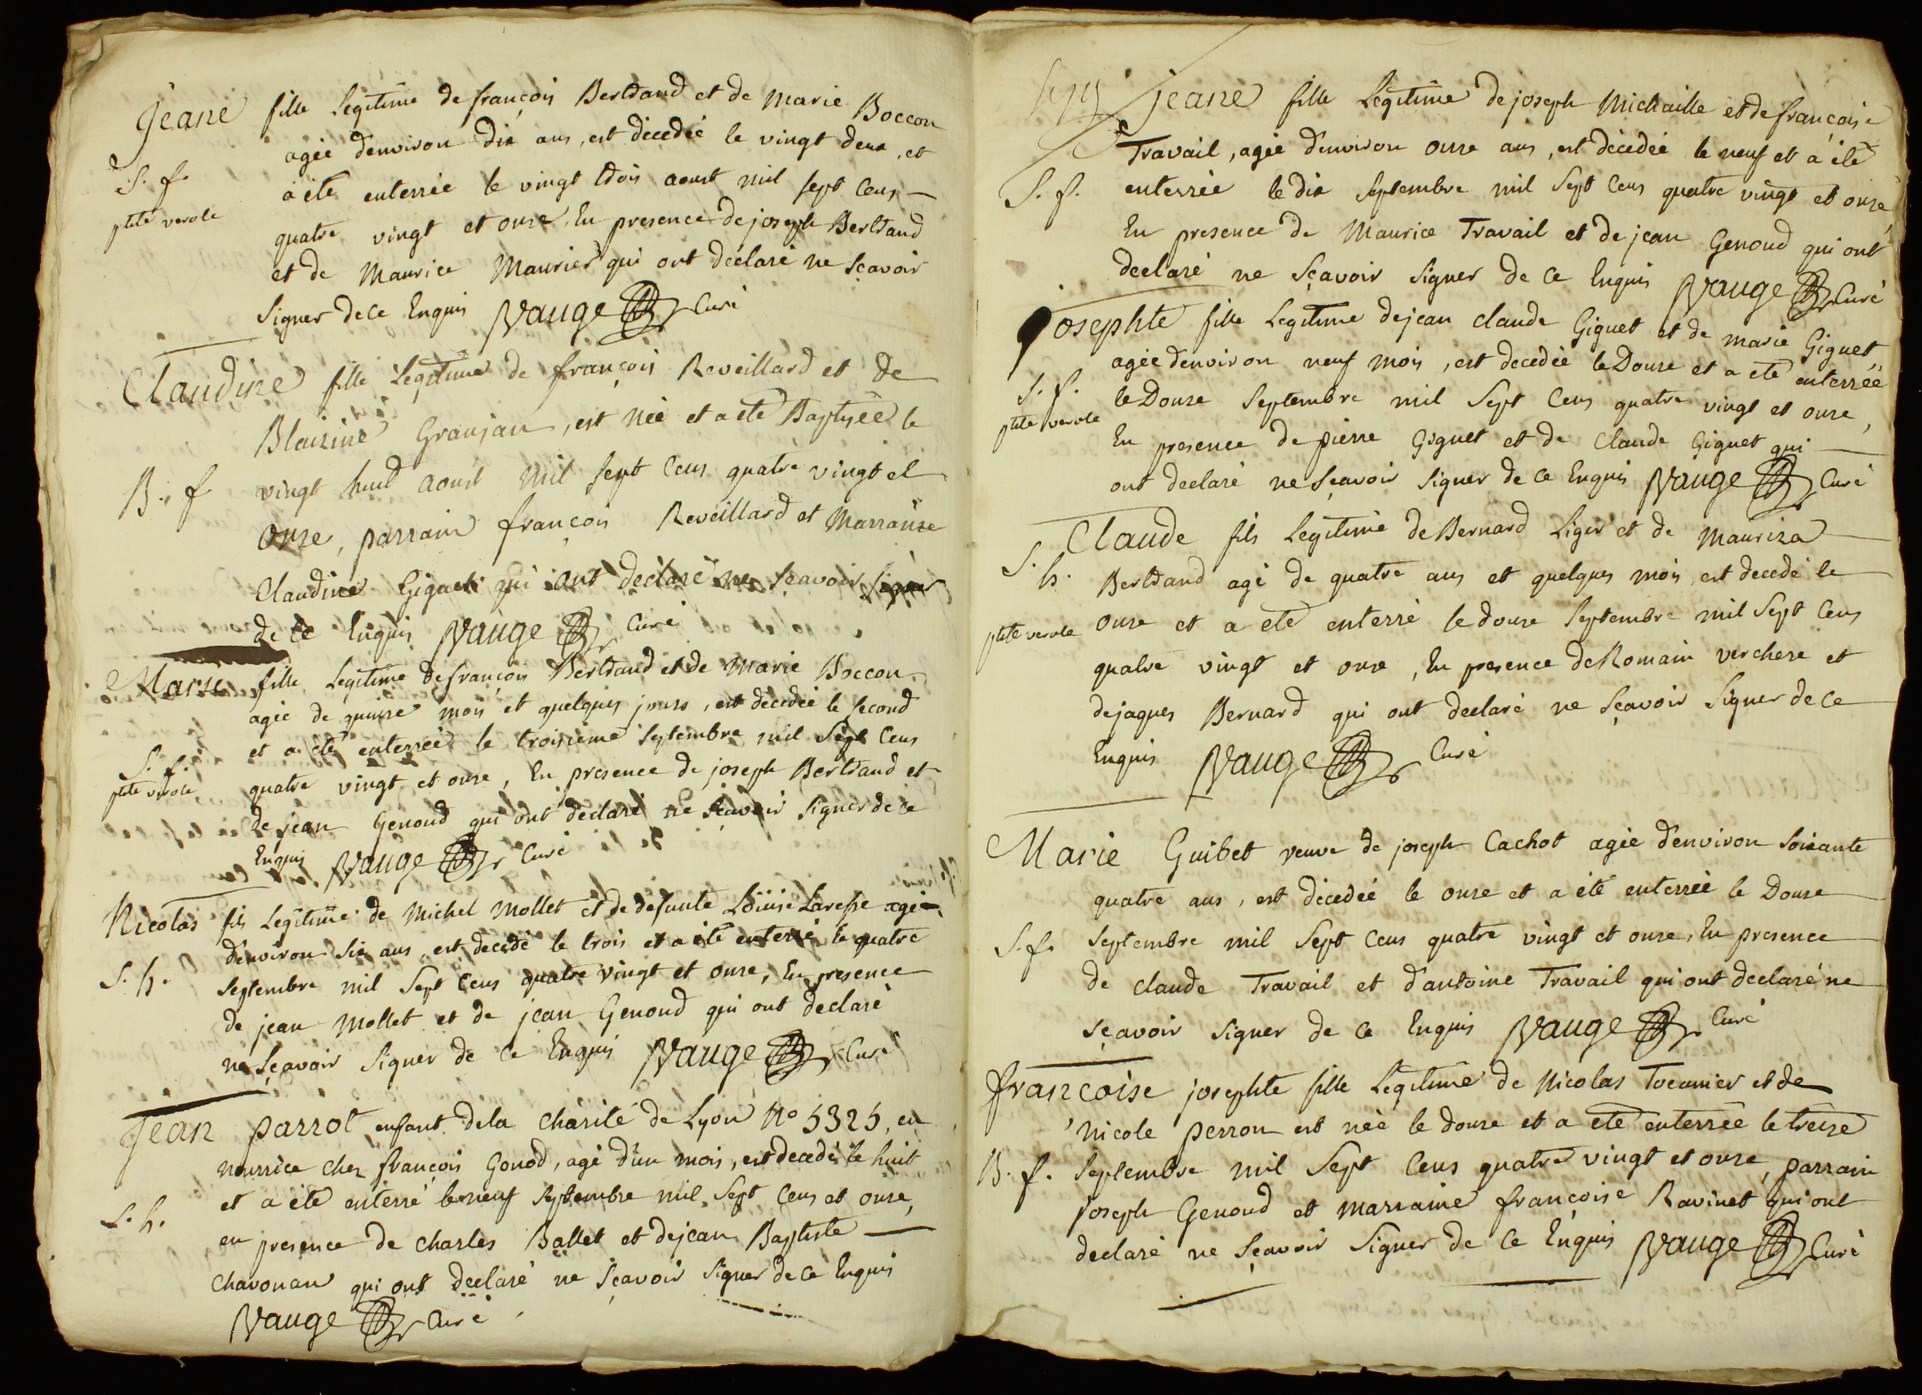 Jeane fille Legitime de françois Bertrand et de Marie Boccon
agée d'environ dix ans, est décedée le vingt deux, et
S. f. a été enterrée le vingt trois aoust mil sept cens
ptite verole quatre vingt et onze, En presence de joseph Bertrand
et de Maurice Maurier qui ont déclaré ne sçavoir
signer de ce Enquis Vauge Curé
Claudine fille Legitime de françois Reveillard et de
Blaizine Granjan, est née et a été Baptisée le
B. f vingt huit aoust mil sept cens quatre vingt et
onze, parrain françois Reveillard et Marraine
Claudine Giguet qui ont declaré ne sçavoir signer
de ce Enquis Vauge Curé
Marie fille Legitime de françois Bertrand et de Marie Boccon
agée de quinze mois et quelques jours, est décedée le second
et a été enterrée le troisieme septembre mil sept cens
S. f. ptite verole quatre vingt et onze, En presence de joseph Bertrand et
de jean Genoud qui ont declaré ne sçavoir signer de ce
Enquis Vauge Curé
Nicolas fils Legitime de Michel Mollet et de defunte Loüise agé
d'environ six ans, est decedé le trois et a été enterré le quatre
S. h. septembre mil sept cens quatre vingt et onze, En presence
de jean Mollet et de jean Genoud qui ont declaré
ne sçavoir signer de ce Enquis Vauge Curé
Jean parrot enfant de la charité de Lyon No 5325, en
nourrice chez françois Gonod, agé d'un mois, est decedé le huit
S. h. et a été enterré le neuf septembre mil sept cens et onze,
en presence de charles Ballet et de jean Baptiste
chavonan qui ont declaré ne sçavoir signer de ce Enquis
Vauge Curé
jeane fille Legitime de joseph Michaille et de françoise
Travail, agée d'environ onze ans, est décedée le neuf et a été
S. f. enterrée le dix septembre mil sept cens quatre vingt et onze,
En presence de Maurice Travail et de jean Genoud qui ont
declaré ne sçavoir signer de ce Enquis Vauge Curé
Josephte fille Legitime de jean claude Giguet et de marie Giguet
agée d'environ neuf mois, est decedée le Douze et a été enterrée
S. f. le Douze septembre mil sept cens quatre vingt et onze,
ptite verole En presence de pierre Giguet et de claude Giguet qui
ont declaré ne sçavoir signer de ce Enquis Vauge Curé
Claude fils Legitime de Bernard Liger et de Mauriza
S. h. Bertrand agé de quatre ans et quelques mois, est decedé le
ptite verole onze et a été enterré le douze septembre mil sept cens
quatre vingt et onze, En presence de Romain verchere et
de jaques Bernard qui ont declaré ne sçavoir signer de ce
Enquis Vauge Curé
Marie Guibet veuve de joseph Cachot agée d'environ soixante
quatre ans, est décedée le onze et a été enterrée le Douze
S. f. septembre mil sept cens quatre vingt et onze, En presence
de claude Travail et d'antoine Travail qui ont declaré ne
sçavoir signer de ce Enquis Vauge Curé
françoise josephte fille Legitime de Nicolas et de
Nicole perron est née le douze et a été enterrée le treize
B. f. septembre mil sept cens quatre vingt et onze, parrain
joseph Genoud et marraine françoise Ravinet qui ont
declaré ne sçavoir signer de ce Enquis Vauge Curé